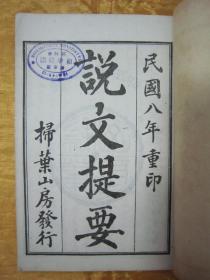 民國八年重印
說文提要
掃葉山房發行